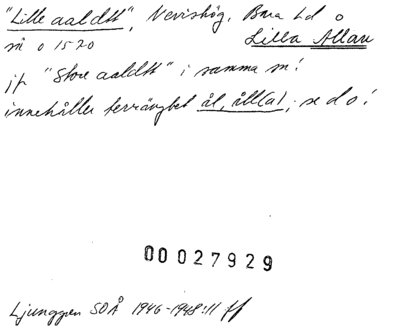 "Lille aaldtt", Nevishög, Bara hd o
sn o 1520 Lilla Allau
jf "Store aaldtt" i samma sn!
innehåller terrängbet ål, åll(a), se d o!
00027929
Ljunggren SOÅ 1946-1948:11 ff